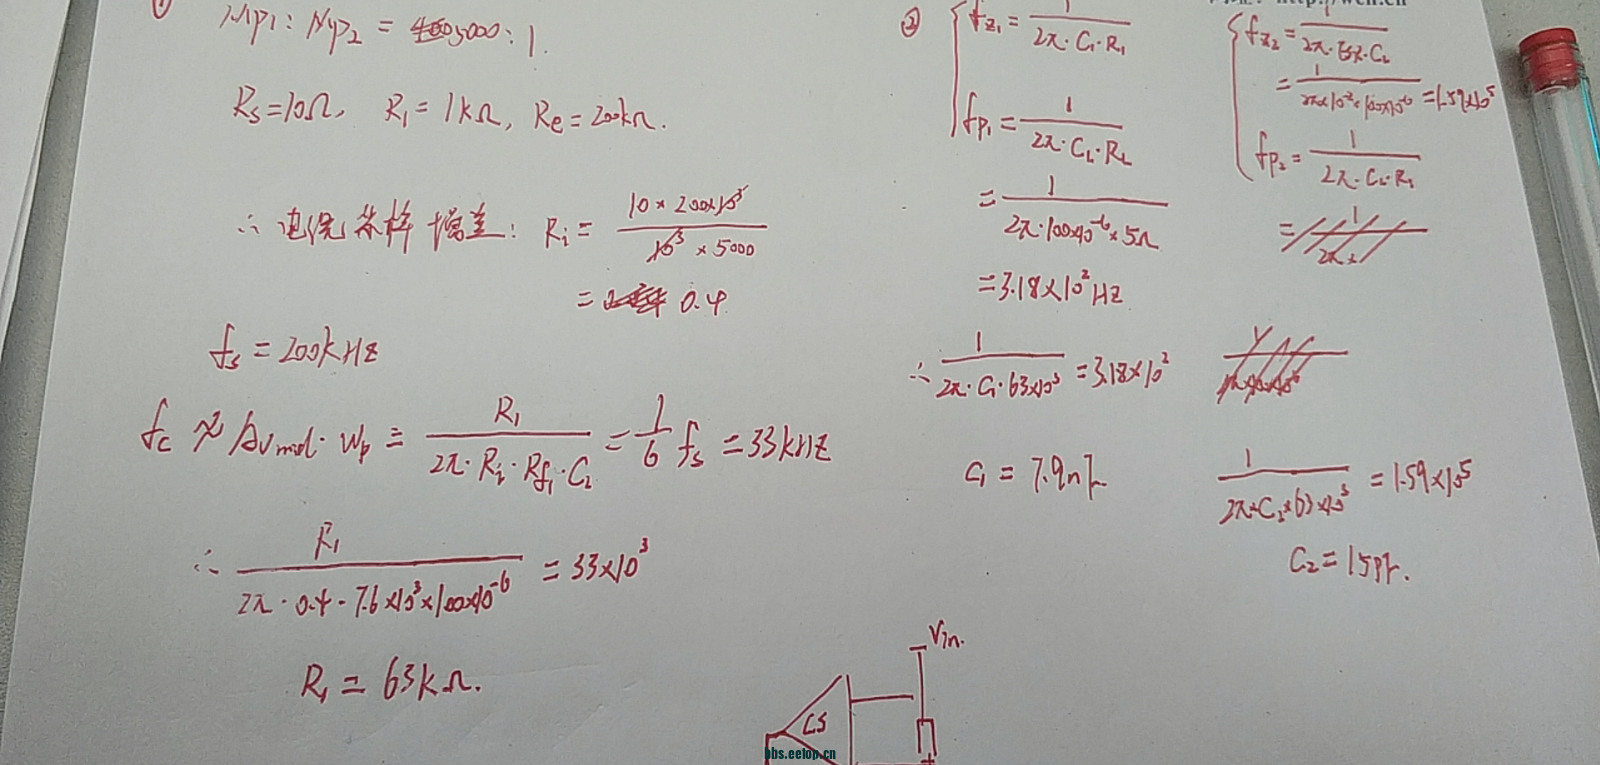 ①
Mp1 : Mp2 = 5000 : 1.
Rs = 10Ω, R1 = 1kΩ, Re = 200kΩ.
∴ 电流采样增益: Ri = (10 × 200×10³) / (10³ × 5000)
= 0.4
fs = 200kHz
fc ≈ Avmod · Wp = R1 / (2π · Ri · Rf1 · C2) = 1/6 fs = 33kHz
∴ R1 / (2π · 0.4 · 7.6×10³×100×10⁻⁶) = 33×10³
R1 = 63kΩ.
② fz1 = 1 / (2π · C1 · R1)
fp1 = 1 / (2π · CL · RL)
= 1 / (2π · 100×10⁻⁶ × 5Ω)
= 3.18×10² Hz
∴ 1 / (2π · C1 · 63×10³) = 3.18×10²
C1 = 7.9nF
fz2 = 1 / (2π · Esr · CL)
= 1 / (2π×10⁻²×100×10⁻⁶) = 1.59×10⁵
fp2 = 1 / (2π · C2 · R1)
1 / (2π×C2×63×10³) = 1.59×10⁵
C2 = 15pF.
Vin.
CS
bbs.eetop.cn